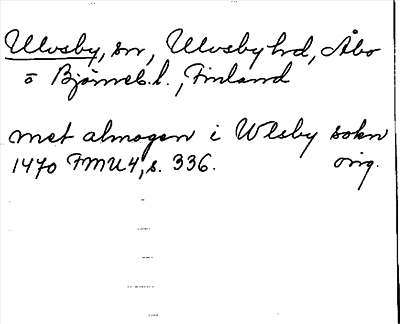 Ulvsby, sn, Ulvsby hd, Åbo
o Björneb. l., Finland
met almogen i Wlsby sokn
1470 FMU4, s. 336. orig.